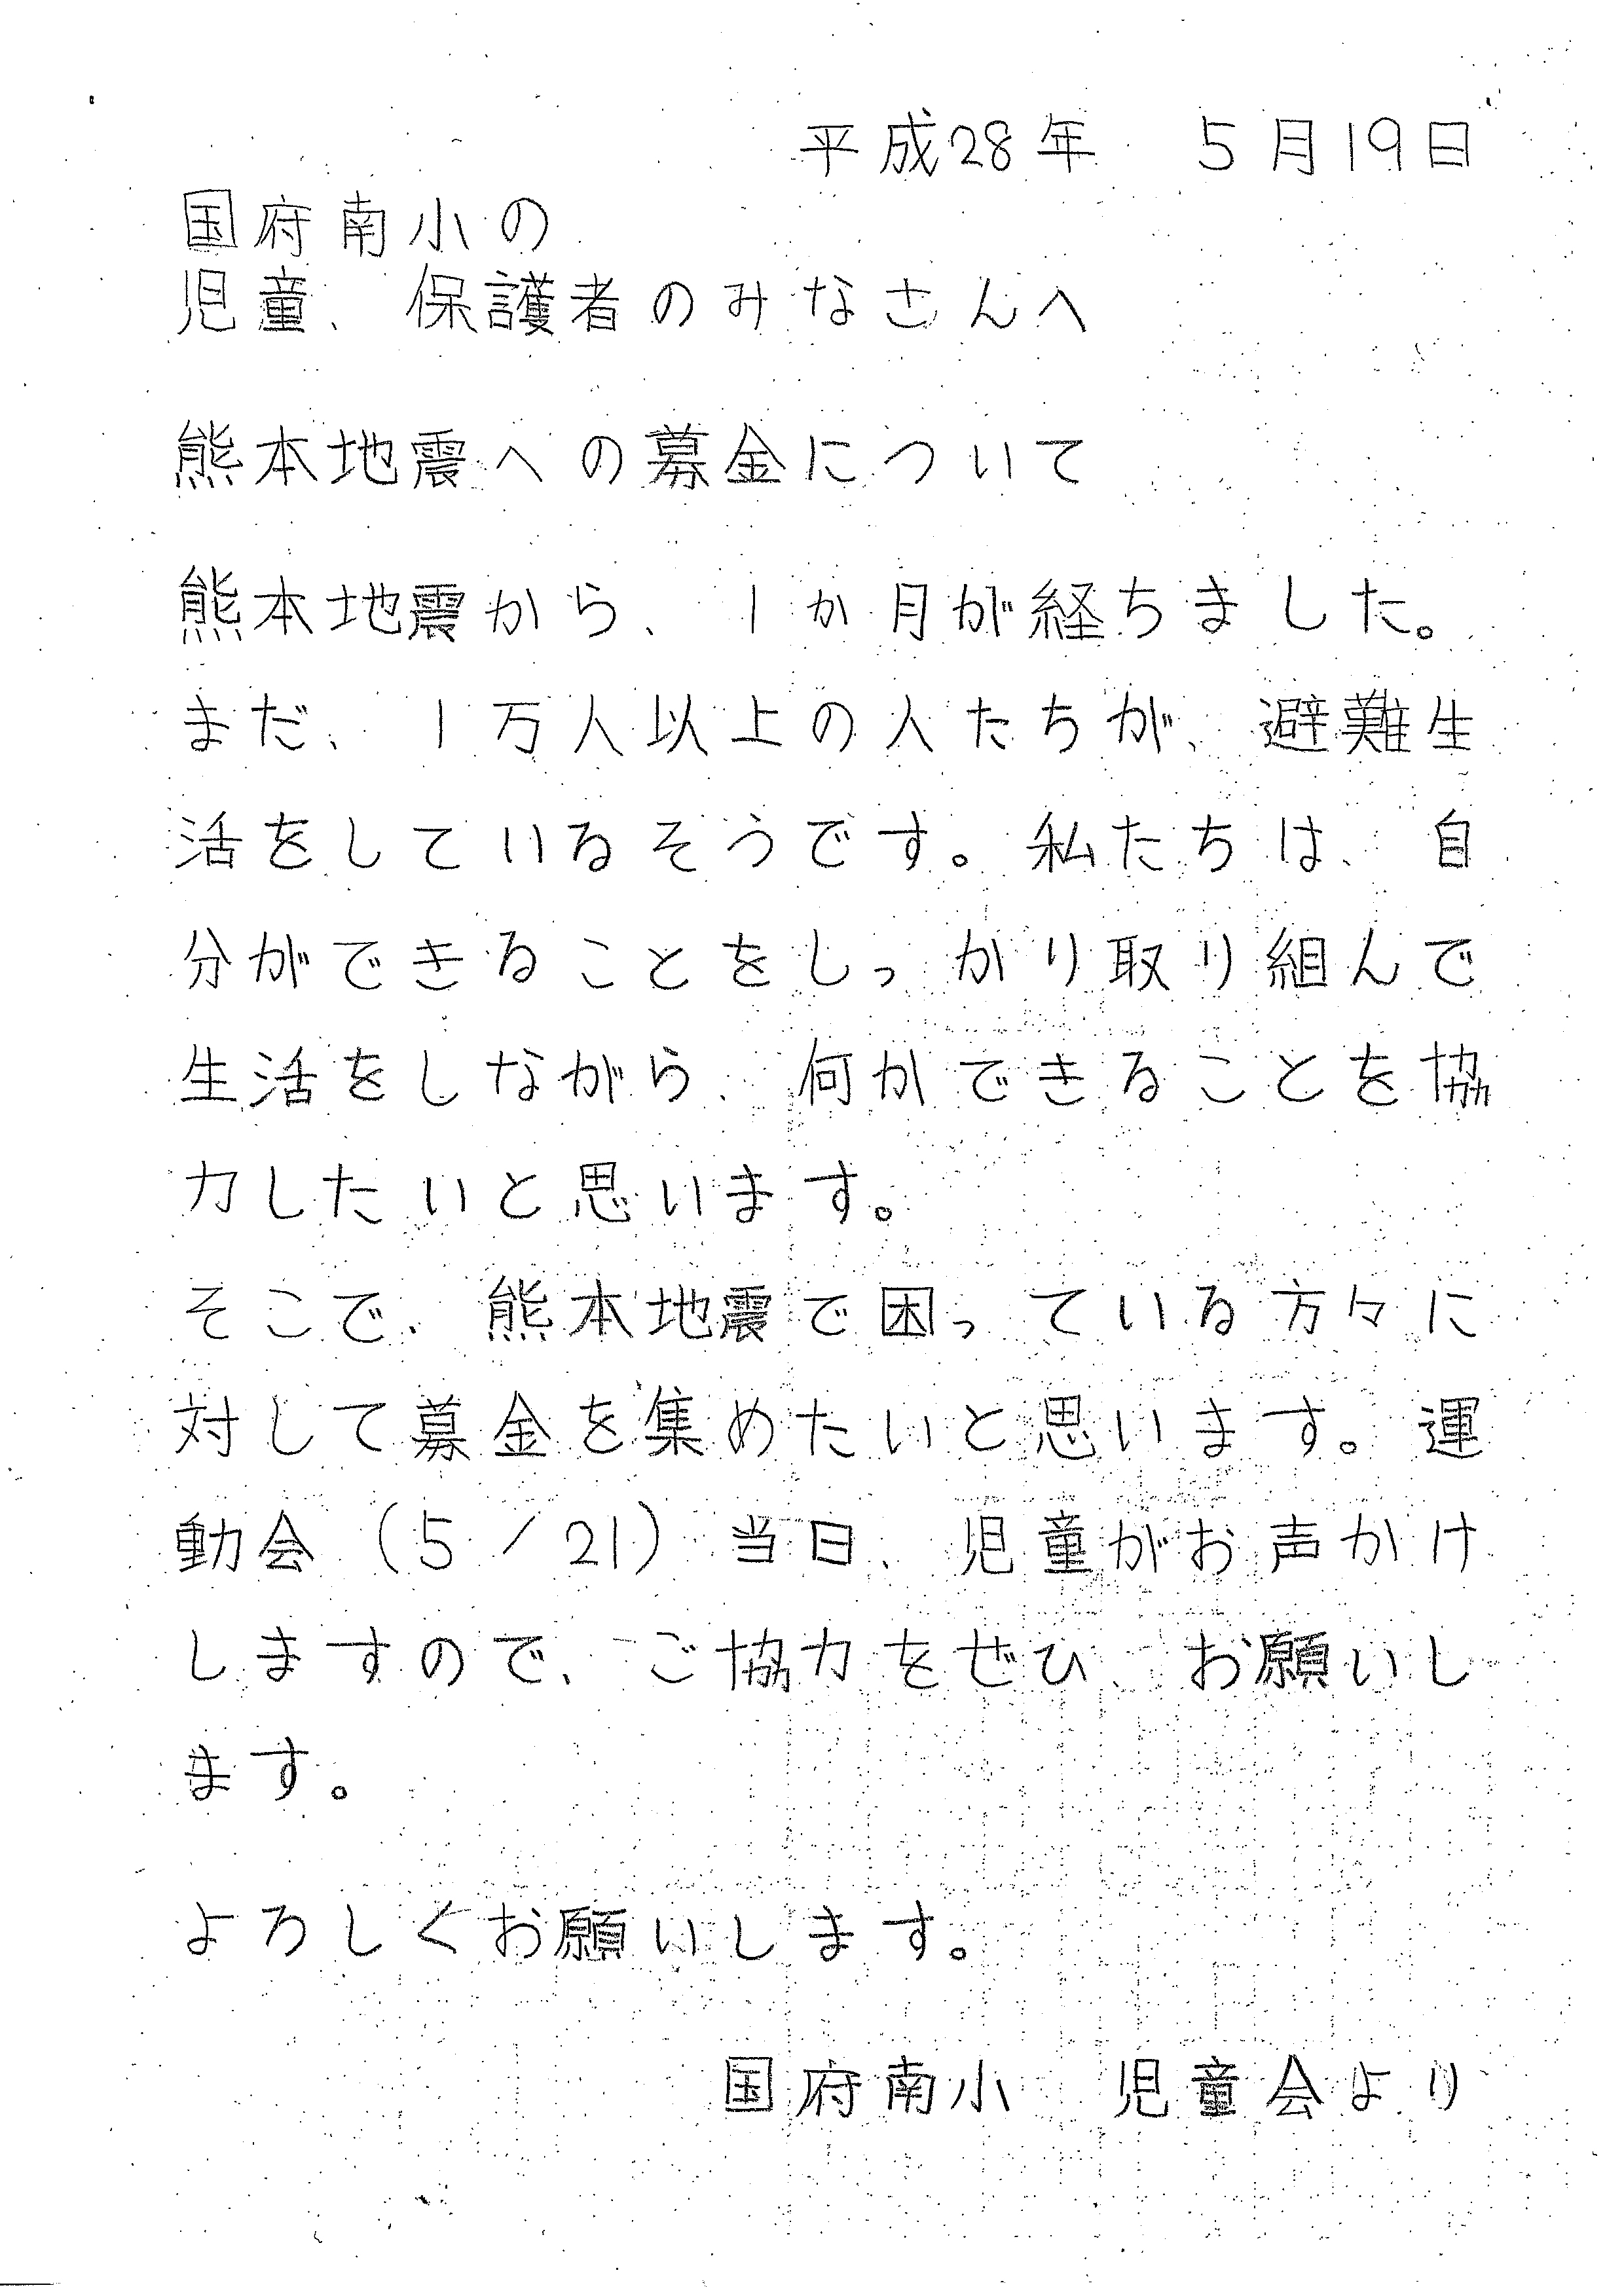 平成28年　5月19日
国府南小の
児童、保護者のみなさんへ
熊本地震への募金について
熊本地震から、1か月が経ちました。
まだ、1万人以上の人たちが、避難生
活をしているそうです。私たちは、自
分ができることをしっかり取り組んで
生活をしながら、何かできることを協
力したいと思います。
そこで、熊本地震で困っている方々に
対して募金を集めたいと思います。運
動会（5／21）当日、児童がお声かけ
しますので、ご協力をぜひ、お願いし
ます。
よろしくお願いします。
国府南小　児童会より